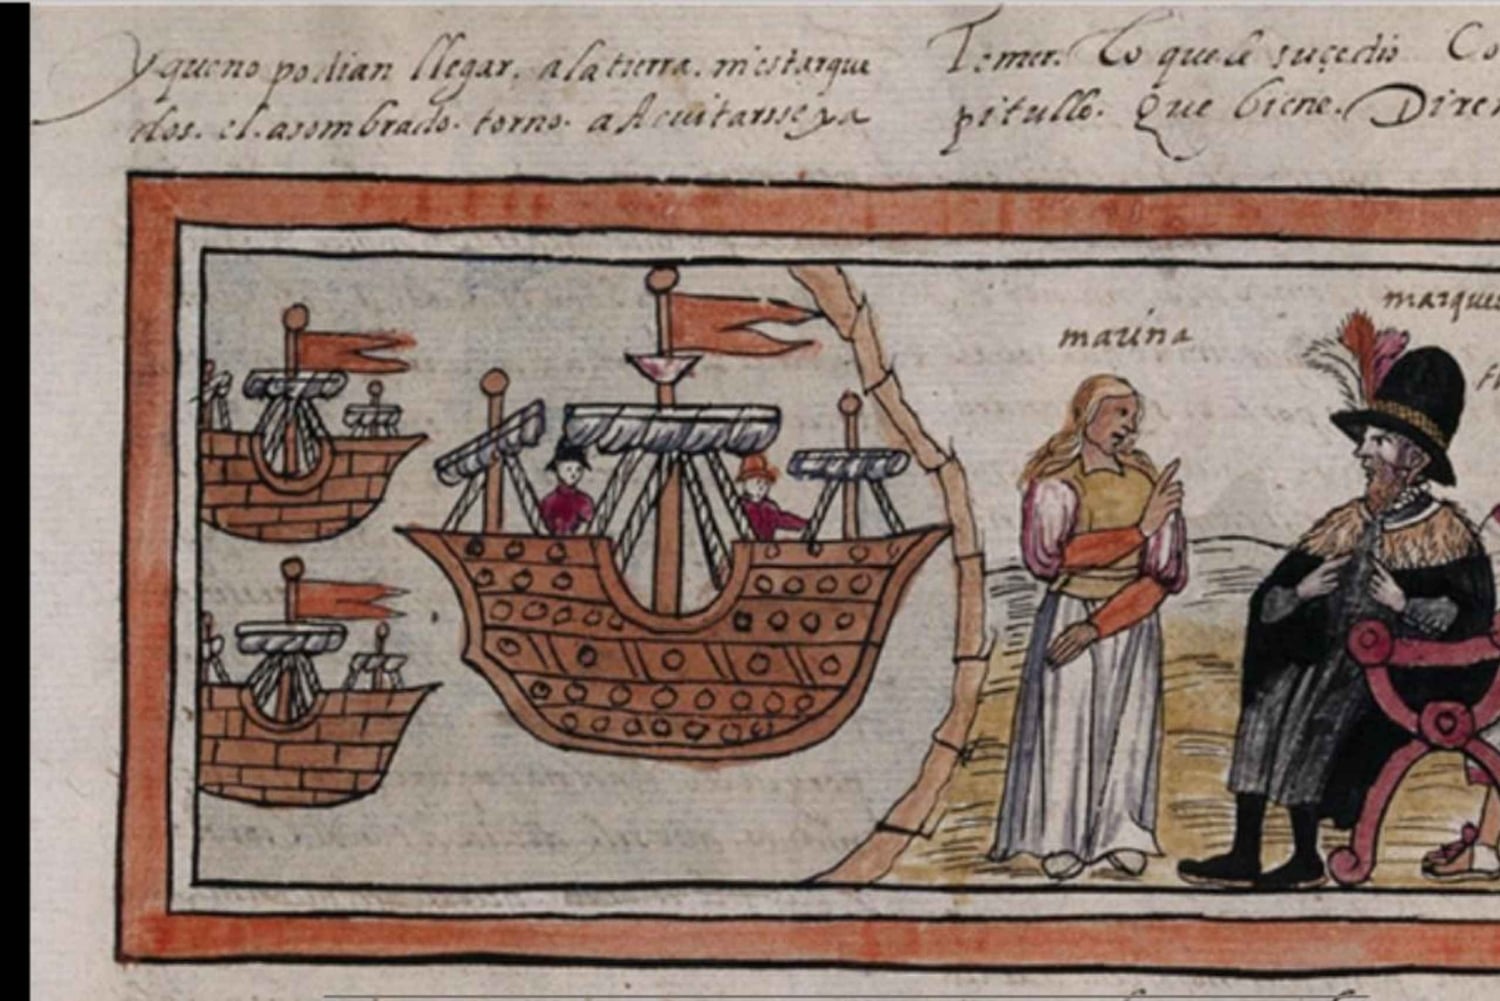 y queno podian llegar. ala tierra. niestarque
dos. el. asombrado. torno. a Acuitarsse ya
Temer. Lo que le suçedio Co
pitullo. Que biene. Diren
marina
marques